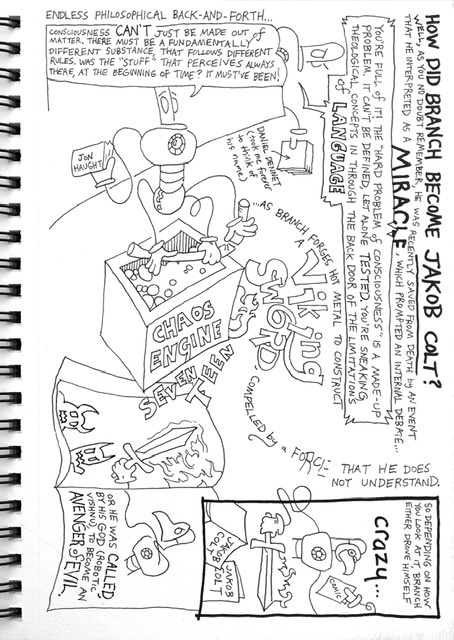 HOW DID BRANCH BECOME JAKOB COLT?
WELL, AS YOU NO DOUBT REMEMBER, HE WAS RECENTLY SAVED FROM DEATH by AN EVENT
THAT HE INTERPRETED AS A MIRACLE, WHICH PROMPTED AN INTERNAL DEBATE...
ENDLESS PHILOSOPHICAL BACK-AND-FORTH...
CONSCIOUSNESS CAN'T JUST BE MADE OUT of
MATTER. THERE MUST BE A FUNDAMENTALLY
DIFFERENT SUBSTANCE, THAT FOLLOWS DIFFERENT
RULES. WAS THE "STUFF" THAT PERCEIVES ALWAYS
THERE, AT THE BEGINNING OF TIME? IT MUST'VE BEEN!
YOU'RE FULL of IT! THE "HARD PROBLEM of CONSCIOUSNESS" IS A MADE-UP
PROBLEM. IT CAN'T BE DEFINED, LET ALONE TESTED. YOU'RE SNEAKING
THEOLOGICAL CONCEPTS IN THROUGH THE BACK DOOR OF THE LIMITATIONS
of LANGUAGE
JON
HAUGHT
DANIEL DENNET
(took me forever
to think of
his name)
...AS BRANCH FORGES HOT METAL TO CONSTRUCT
A
Viking
SWORD
COMPELLED by a FORCE
THAT HE DOES
NOT UNDERSTAND.
CHAOS
ENGINE
SEVEN
TEEN
SO DEPENDING ON HOW
YOU LOOK AT IT, BRANCH
EITHER DROVE HIMSELF
crazy...
COMIC
JAKOB
COLT
JAKOB
COLT
OR HE WAS CALLED
BY HIS GOD (ROBOTIC
VISHNU) TO BECOME AN
AVENGER of EVIL.